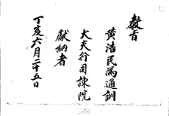 教旨
黃浩民爲通訓
大夫行司諫院
獻納者
丁亥六月二十五日